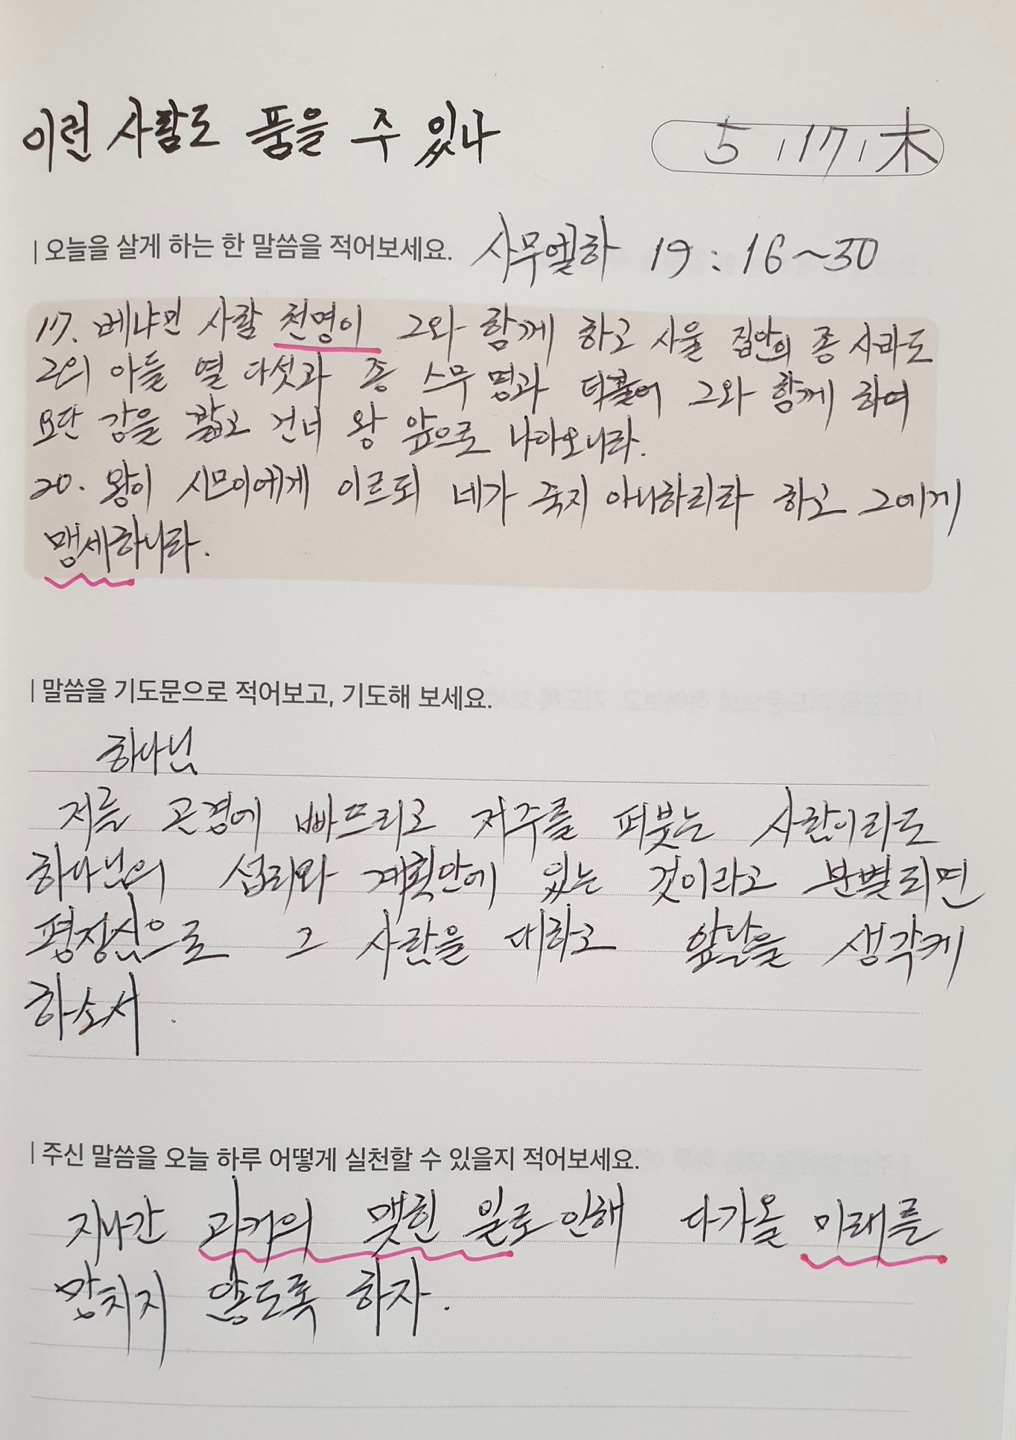 이런 사람도 품을 수 있나
5 / 17 / 木
| 오늘을 살게 하는 한 말씀을 적어보세요. 사무엘하 19 : 16~30
17. 베냐민 사람 천명이 그와 함께 하고 사울 집안의 종 시바도
그의 아들 열 다섯과 종 스무 명과 더불어 그와 함께 하여
요단 강을 밟고 건너 왕 앞으로 나아오니라.
20. 왕이 시므이에게 이르되 네가 죽지 아니하리라 하고 그에게
맹세하니라.
| 말씀을 기도문으로 적어보고, 기도해 보세요.
하나님
저를 곤경에 빠뜨리고 저주를 퍼붓는 사람이라도
하나님의 섭리와 계획안에 있는 것이라고 분별되면
평정심으로 그 사람을 대하고 앞날을 생각케
하소서.
| 주신 말씀을 오늘 하루 어떻게 실천할 수 있을지 적어보세요.
지나간 과거의 맺힌 일로 인해 다가올 미래를
망치지 않도록 하자.